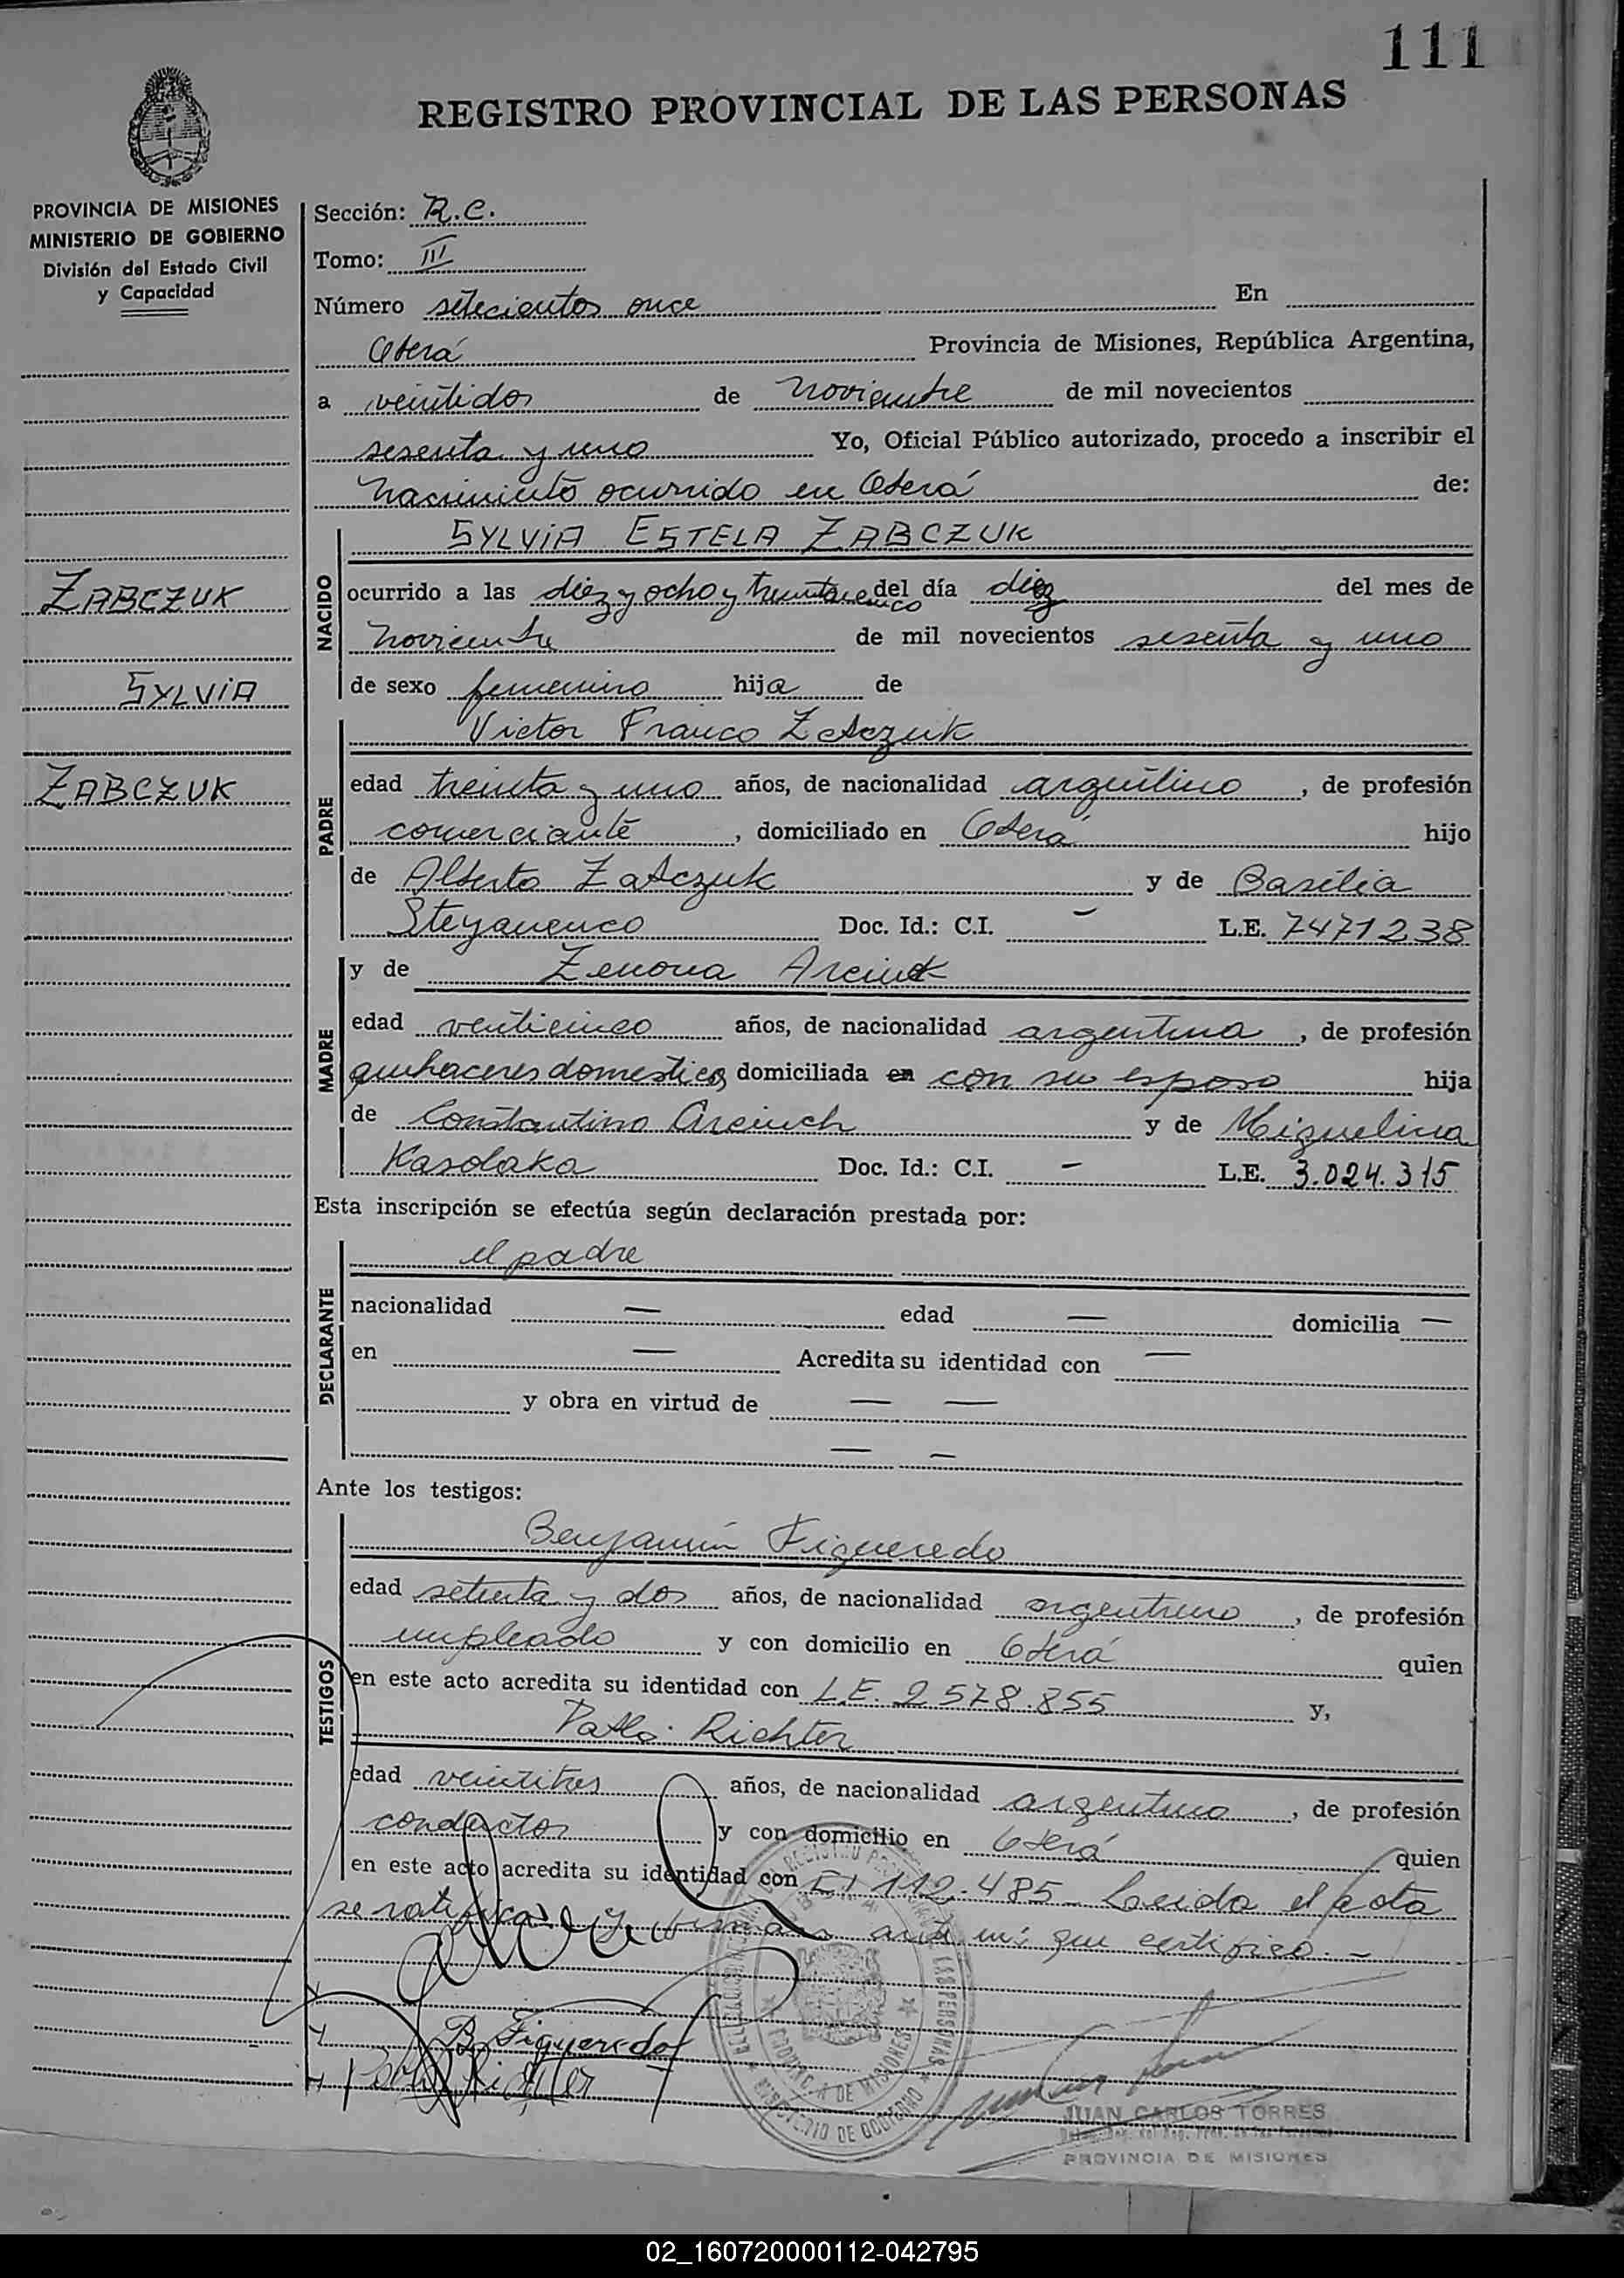 111
REGISTRO PROVINCIAL DE LAS PERSONAS
PROVINCIA DE MISIONES
MINISTERIO DE GOBIERNO
División del Estado Civil
y Capacidad
Sección: R.C.
Tomo: III
Número setecientos once En
Oberá Provincia de Misiones, República Argentina,
a veintidos de noviembre de mil novecientos
sesenta y uno Yo, Oficial Público autorizado, procedo a inscribir el
nacimiento ocurrido en Oberá de:
SYLVIA ESTELA ZABCZUK
ZABCZUK
SYLVIA
ZABCZUK
NACIDO
ocurrido a las diez y ocho y treintaicinco del día diez del mes de
noviembre de mil novecientos sesenta y uno
de sexo femenino hija de
PADRE
Victor Franco Zabczuk
edad treinta y uno años, de nacionalidad argentino, de profesión
comerciante, domiciliado en Oberá hijo
de Alberto Zabczuk y de Basilia
Steyanenco Doc. Id.: C.I. — L.E. 7471238
MADRE
y de Zenona
edad venticinco años, de nacionalidad argentina, de profesión
quehaceres domesticos domiciliada en con su esposo hija
de Constantino y de Miguelina
Kasolaka Doc. Id.: C.I. — L.E. 3.024.315
Esta inscripción se efectúa según declaración prestada por:
DECLARANTE
el padre
nacionalidad — edad — domicilia —
en — Acredita su identidad con —
y obra en virtud de — —
— —
Ante los testigos:
TESTIGOS
Benjamín Figueredo
edad setenta y dos años, de nacionalidad argentino, de profesión
empleado y con domicilio en Oberá quien
en este acto acredita su identidad con L.E. 2578.855 y,
Pablo Richter
edad veintitres años, de nacionalidad argentino, de profesión
conductor y con domicilio en Oberá quien
en este acto acredita su identidad con CI 112.485 - Leida el acta
se ratifican y firman ante mí; que certifico. -
B. Figueredo
Pablo Richter
PROVINCIA DE MISIONES
MINISTERIO DE GOBIERNO
JUAN CARLOS TORRES
PROVINCIA DE MISIONES
02_160720000112-042795